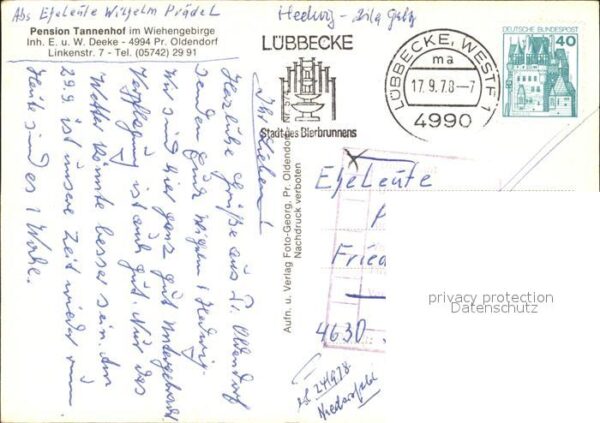 Abs Eheleute Wilhelm Prädel
Pension Tannenhof im Wiehengebirge
Inh. E. u. W. Deeke - 4994 Pr. Oldendorf
Linkenstr. 7 - Tel. (05742) 29 91
Hedwig -
LÜBBECKE
Stadt des Bierbrunnens
LÜBBECKE, WESTF 1
ma
17. 9. 78 - 7
4990
DEUTSCHE BUNDESPOST
40
Ihr Lieben!
Herzliche Grüße aus Pr. Oldendorf
senden Euch Wilhelm & Hedwig.
Wir sind hier ganz gut untergebracht
Verpflegung ist auch gut. Nur das
Wetter könnte besser sein. Am
29.9. ist unsere Zeit wieder rum
Heute sind es 1 Woche.
Aufn. u. Verlag Foto-Georg, Pr. Oldendorf
Nachdruck verboten
Eheleute
P
Fried
4630
privacy protection
Datenschutz